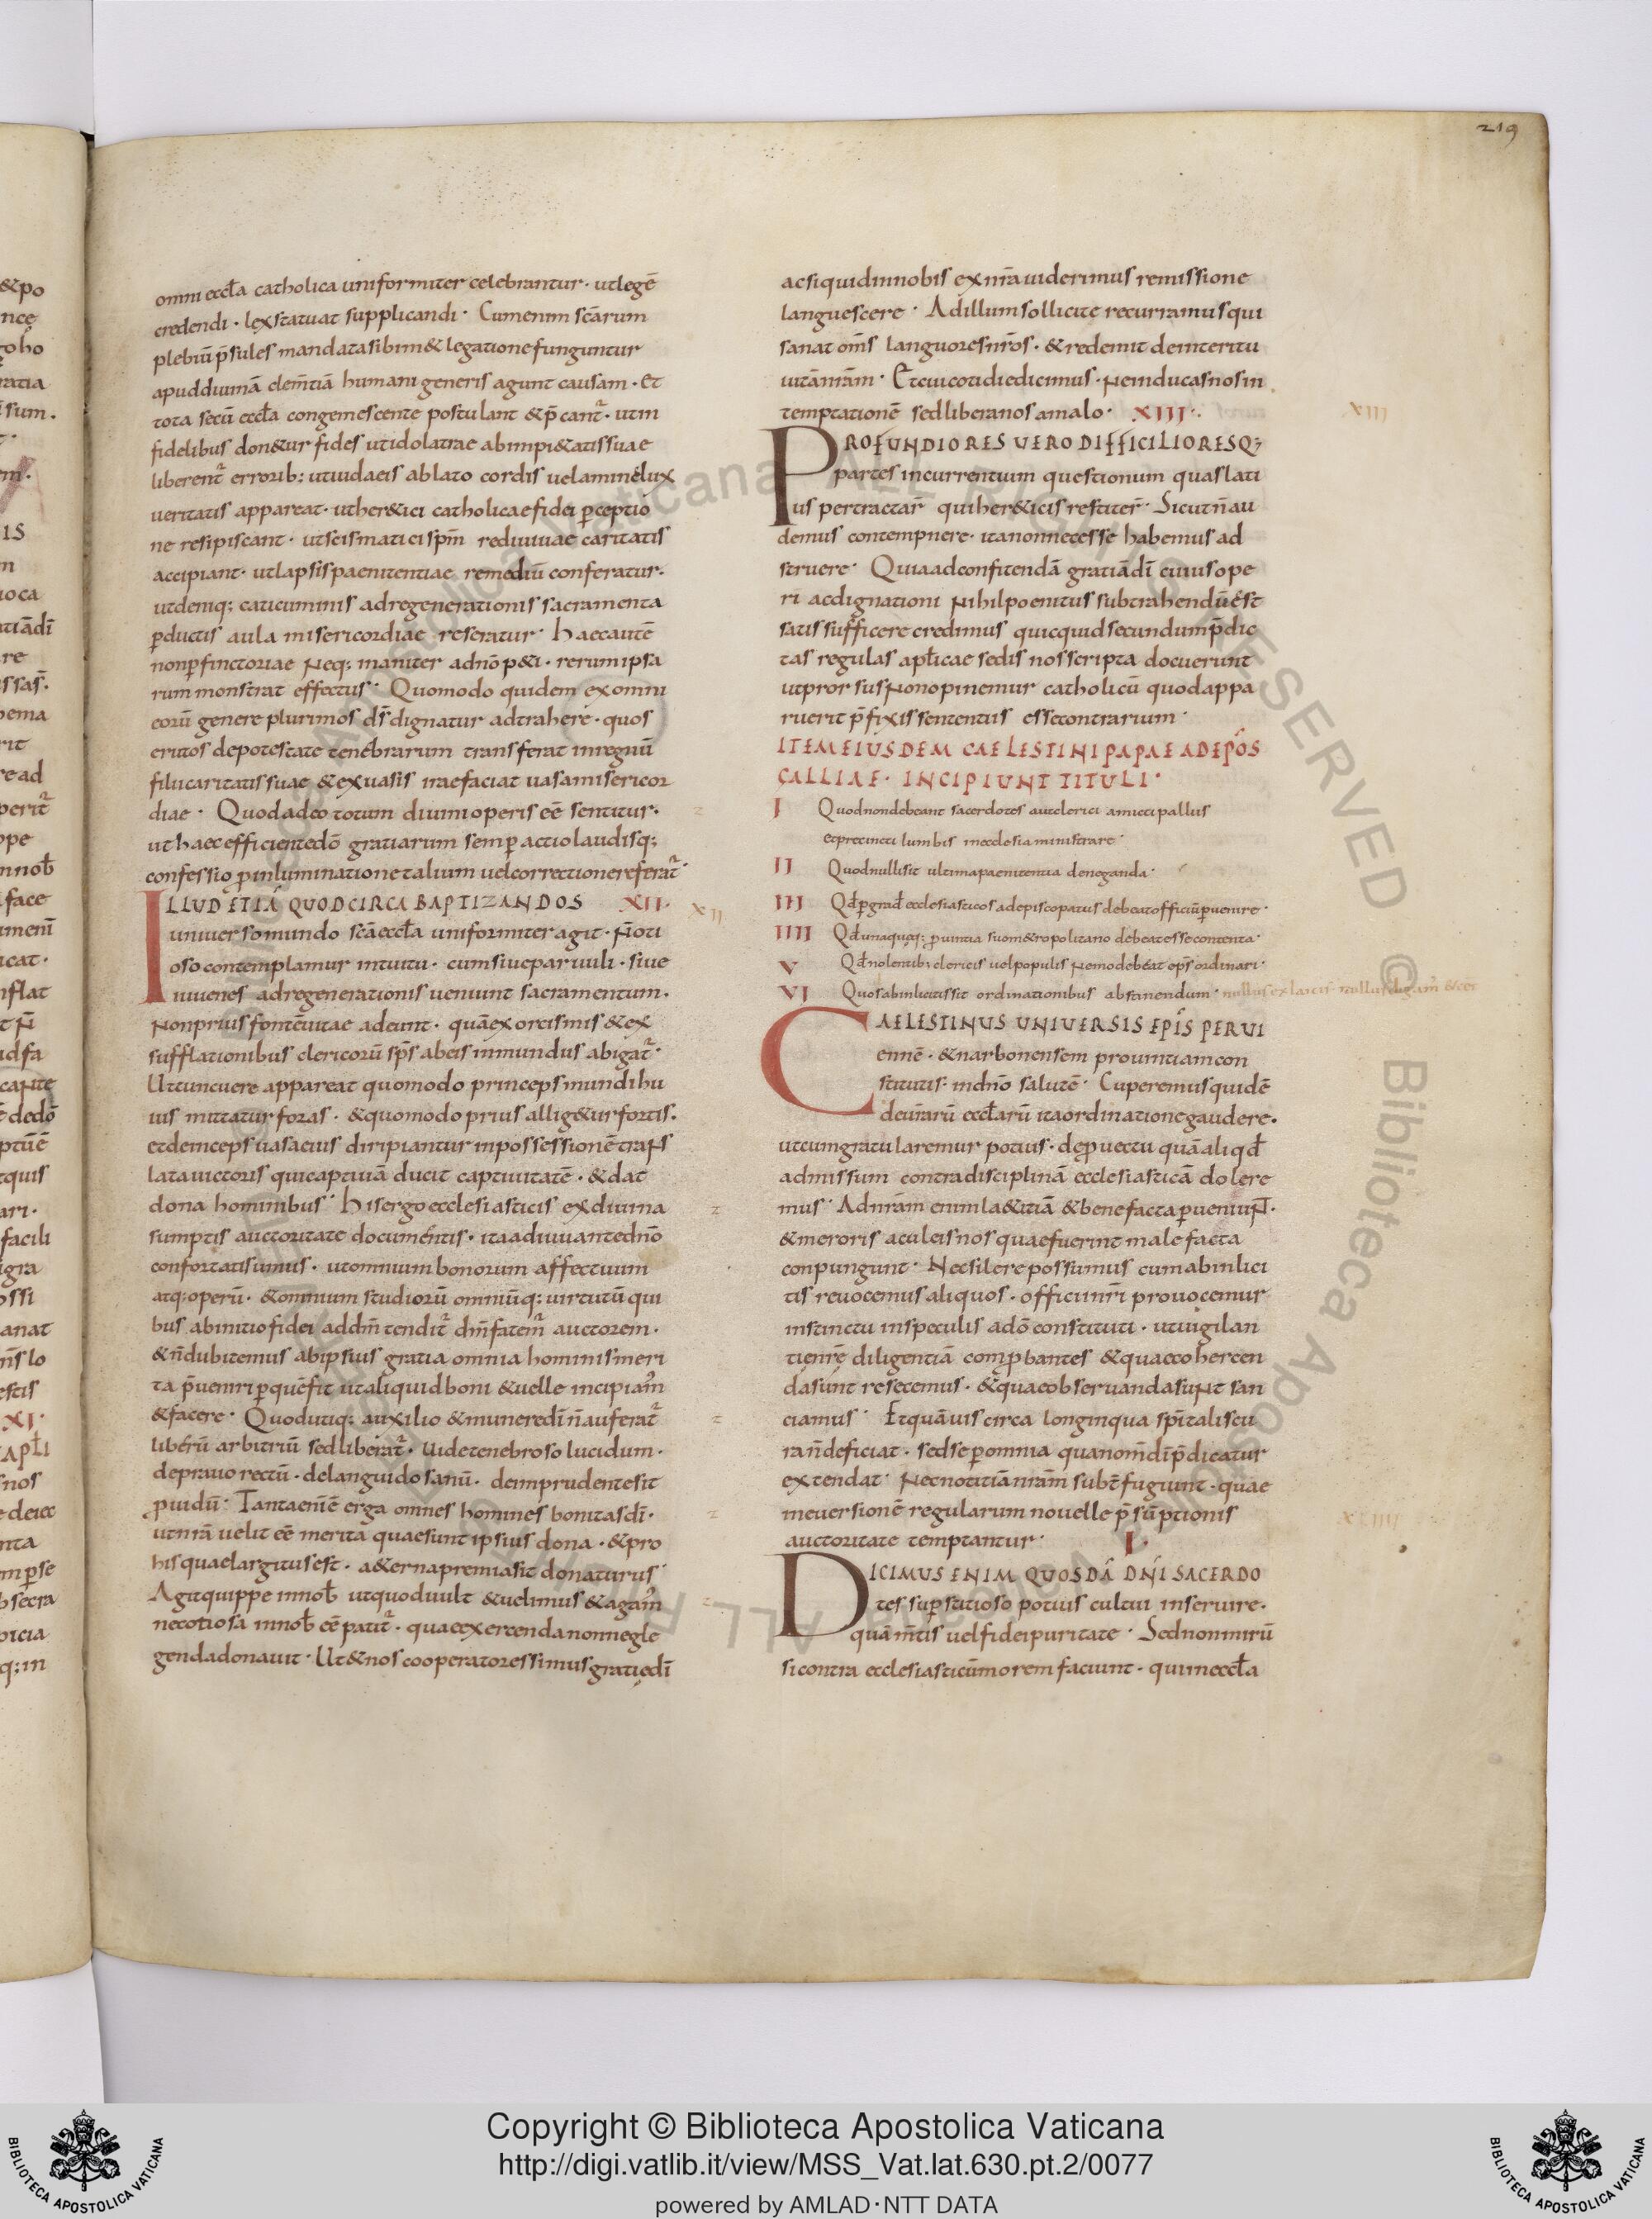 219
omni eccła catholica uniformiter celebrantur · ut legē
credendi · lex statuat supplicandi · Cum enim scārum
plebiū p̄sules mandata sibimet legatione funguntur
apud diuinā clem̄tiā humani generis agunt causam · Et
tota secū eccła congemescente postulant & p̄cant̄ · ut in
fidelibus don&ur fides ut idolatrae ab impi&atis suae
liberent̄ errorib: ut iudaeis ablato cordis uelamine lux
ueritatis appareat · ut her&ici catholicae fidei ꝑceptio
ne resipiscant · ut scismatici sp̄m rediuiuae caritatis
accipiant · ut lapsis paenitentiae remediū conferatur ·
ut deniq; caticuminis ad regenerationis sacramenta
ꝑductis aula misericordiae reseratur · Haec autē
non ꝑfinctoriae neq; maniter a dnō p&i · rerum ipsa
rum monstrat effectus · Quomodo quidem ex omni
eorū genere plurimos ds̄ dignatur adtrahere · quos
erutos de potestate tenebrarum transferat in regnū
filii caritatis suae & ex uasis irae faciat uasa misericor
diae · Quod adeo totum diuini operis eē sentitur ·
ut haec efficiente dō gratiarum semꝑ actio laudisq;
confessio ꝓ inluminatione talium uel correctione referat̄ ·
ILLUD ETIĀ QUOD CIRCA BAPTIZANDOS XII · XII
uniuerso mundo scā eccła uniformiter agit · N̄ oti
oso contemplamur intuitu · cum siue paruuli · siue
iuuenes ad regenerationis ueniunt sacramentum ·
Non prius fontē uitae adeunt · quā exorcismis & ex
sufflationibus clericorū sps̄ ab eis inmundus abigat̄ ·
Ut tunc uere appareat quomodo princeps mundi hu
ius mittatur foras · & quomodo prius allig&ur fortis ·
et deinceps uasa eius diripiantur in possessionē trans
lata uictoris qui captiuā ducit captiuitatē · & dat
dona hominibus · His ergo ecclesiasticis ex diuina
sumptis auctoritate documentis · ita adiuuante dnō
confortati sumus · ut omnium bonorum affectuum
atq; operū · & omnium studiorū omniūq; uirtutū qui
bus ab initio fidei ad dm̄ tendit̄ dm̄ fatem̄ auctorem ·
& n̄ dubitemus ab ipsius gratia omnia hominis meri
ta p̄ueniri ꝑ quē fit ut aliquid boni & uelle incipiam̄
& facere · Quod utiq; auxilio & munere dī n̄ auferat̄
liberū arbitriū sed liberat̄ · ut de tenebroso lucidum ·
de prauo rectū · de languido sanū · de imprudente sit
ꝓuidū · Tanta enī ē erga omnes homines bonitas dī ·
ut nrā uelit eē merita quae sunt ipsius dona · & pro
his quae largitus est · a&erna premia sit donaturus ·
Agit quippe in nob̄ ut quod uult & uelimus & agam̄
nec otiosa in nob̄ eē patit̄ · quae exercenda non negle
genda donauit · Ut & nos cooperatores simus gratię dī
ac si quid in nobis ex nrā uiderimus remissione
languescere · Ad illum sollicite recurramus qui
sanat om̄s languores nrōs · & redemit de interitu
uitā nrām · Et cui cotidie dicimus · Ne inducas nos in
temptationē sed libera nos a malo · XIII · XIII
PROFUNDIORES UERO DIFFICILIORESQ;
partes incurrentium questionum quas lati
us pertractar̄ qui her&icis restiter̄ · Sicut n̄ au
demus contempnere · ita non necesse habemus ad
struere · Quia ad confitendā gratiā dī cuius ope
ri ac dignationi nihil poenitus subtrahendū est
satis sufficere credimus quicquid secundum p̄dic
tas regulas apłicae sedis nos scripta docuerunt
ut prorsus non opinemur catholicū quod appa
ruerit p̄fixis sententiis esse contrarium ·
ITEM EIUSDEM CAELESTINI PAPAE AD EPŌS
GALLIAE · INCIPIUNT TITULI ·
I Quod non debeant sacerdotes aut clerici amicti pallus
et precincti lumbis in ecclesia ministrare ·
II Quod nulli sit ultima paenitentia deneganda ·
III Qd̄ ꝑ grad̄ ecclesiasticos ad episcopatus debeat officiū ꝑuenire ·
IIII Qd̄ unaquaq; ꝓuintia suo m&ropolitano debeat esse contenta ·
V Qd̄ nolentib; clericis uel populis nemo debeat eps̄ ordinari ·
VI Quos ab inlicitis sit ordinationibus abstinendum · nullus ex laicis
CAELESTINUS UNIUERSIS EPĪS PER UI
ennē · & narbonensem prouintiam con
stitutis · in dnō salutē · Cuperemus quidē
de uīarū eccłarū ita ordinatione gaudere ·
ut congratularemur potius · de ꝓuectu quā aliqd̄
admissum contra disciplinā ecclesiasticā dolere
mus · Ad nrām enim la&itiā & benefacta ꝑueniunt ·
& meroris aculeis nos quae fuerint male facta
conpungunt · Nec silere possumus cum ab inlici
tis reuocemus aliquos · officii nrī prouocemur
instinctu in speculis a dō constituti · ut uigilan
tię nrę diligentiā comꝓbantes & quae cohercen
da sunt resecemus · & quae obseruanda sunt san
ciamus · Et quāuis circa longinqua spītalis cu
ra n̄ deficiat · sed se ꝑ omnia qua nom̄ dī p̄dicatur
extendat · Nec notitiā nrām subt̄fugiunt · quae
in euersionē regularum nouelle p̄sūptionis
auctoritate temptantur · I · XIIII
DICIMUS ENIM QUOSDĀ DN̄I SACERDO
tes suꝑstitioso potius cultui inseruire ·
quā m̄tis uel fidei puritate · Sed non mirū
si contra ecclesiasticū morem faciunt · qui in eccła
Copyright © Biblioteca Apostolica Vaticana
http://digi.vatlib.it/view/MSS_Vat.lat.630.pt.2/0077
powered by AMLAD·NTT DATA
BIBLIOTECA APOSTOLICA VATICANA
BIBLIOTECA APOSTOLICA VATICANA